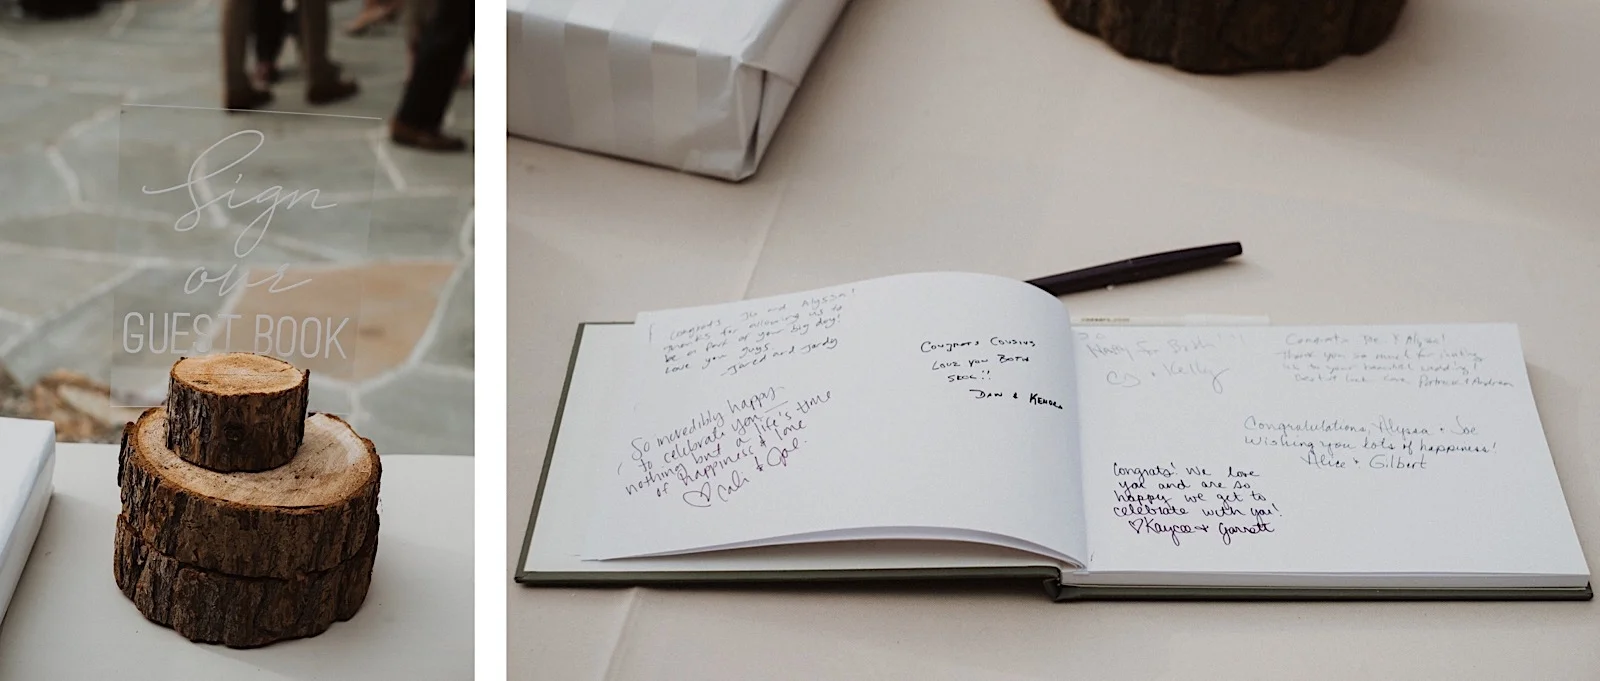 Sign
our
GUEST BOOK
Congrats Joe and Alyssa!
Thanks for allowing us to
be a part of your big day!
Love you guys.
Jared and Jordy
So incredibly happy
to celebrate you
nothing but a life's time
of happiness & love
♡ Cali & Joe
Congrats Cousins
Love you Both
Dan & Kendra
Happy for Both
Cy + Kelly
Congrats Joe & Alyssa!
Thank you so much for inviting
us to your beautiful wedding!
Best of luck Love Patrick + Andrea
Congratulations, Alyssa + Joe
Wishing you lots of happiness!
Alice + Gilbert
Congrats! We love
you and are so
happy we get to
celebrate with you!
♡Kaycee + Garrett